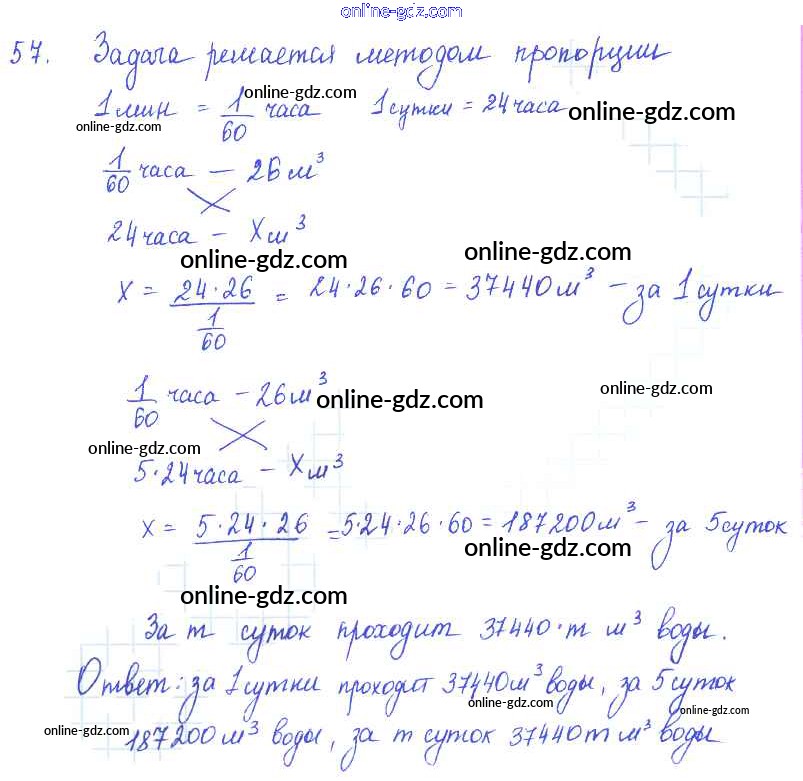 online-gdz.com
57. Задача решается методом пропорции
1 мин = 1/60 часа 1 сутки = 24 часа
online-gdz.com
online-gdz.com online-gdz.com
1/60 часа — 26 м³
24 часа — X м³
online-gdz.com online-gdz.com
X = 24·26 / 1/60 = 24·26·60 = 37440 м³ — за 1 сутки
1/60 часа — 26 м³
online-gdz.com online-gdz.com
online-gdz.com
5·24 часа — X м³
X = 5·24·26 / 1/60 = 5·24·26·60 = 187200 м³ — за 5 суток
online-gdz.com
online-gdz.com
За m суток проходит 37440·m м³ воды.
Ответ: за 1 сутки проходит 37440 м³ воды, за 5 суток
online-gdz.com online-gdz.com
187200 м³ воды, за m суток 37440m м³ воды
online-gdz.com